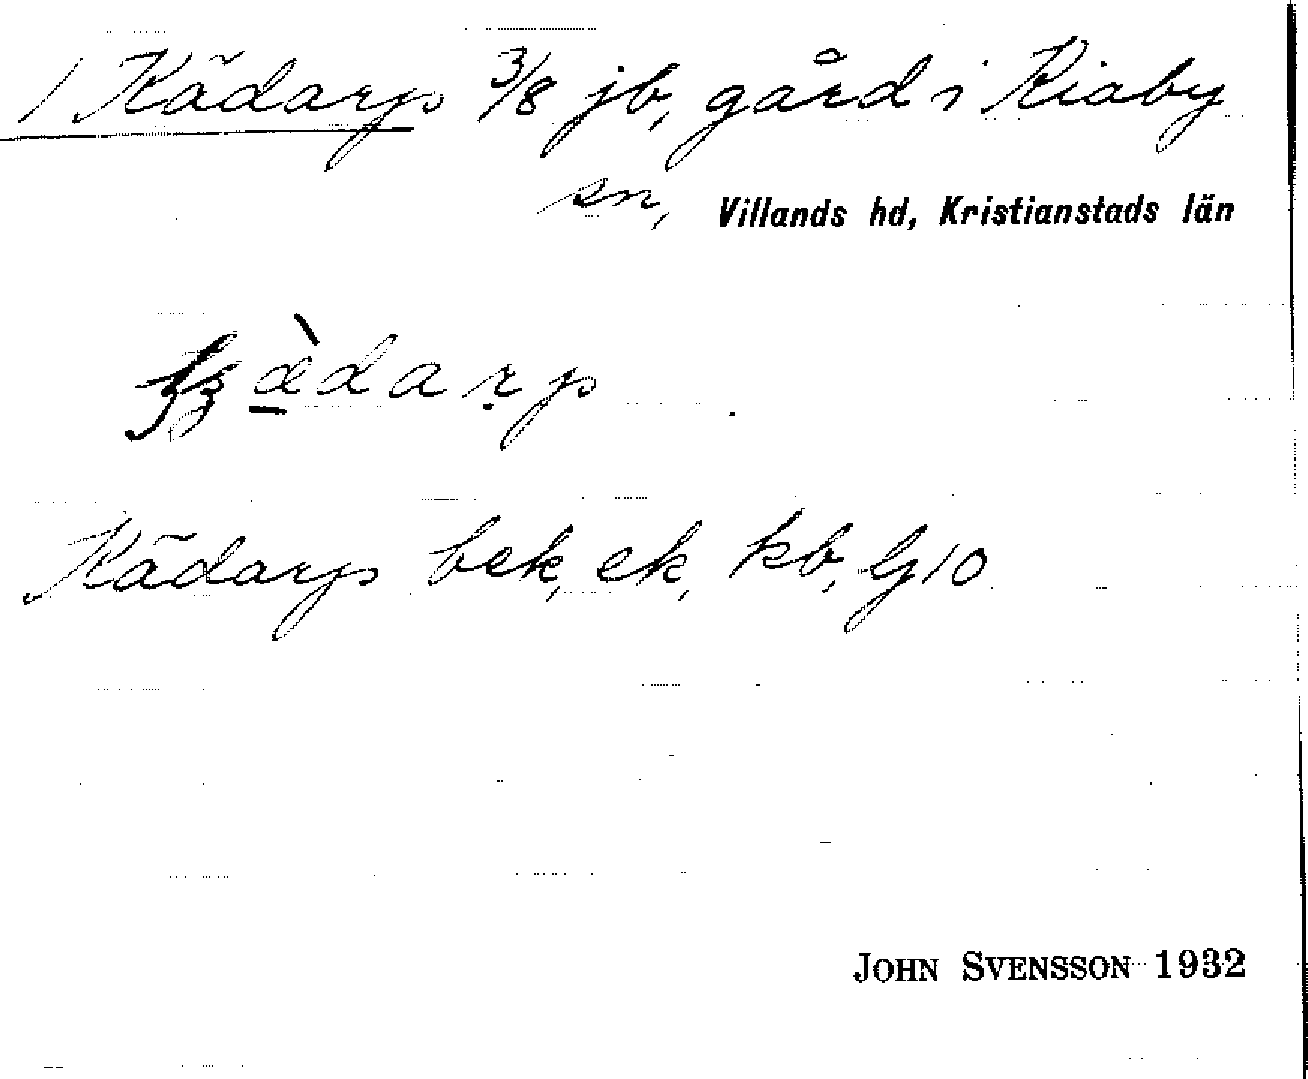 1 Kädarp 3/8 jb, gård i Kiaby
sn, Villands hd, Kristianstads län
Kädarp bek, ek, kb, G10
JOHN SVENSSON 1932